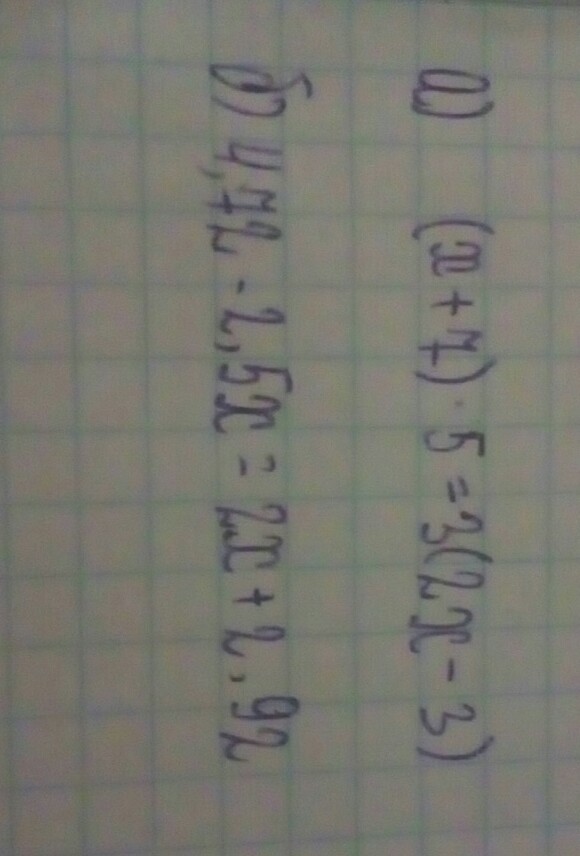 а) (x + 7) · 5 = 3(2x - 3)
б) 4,72 - 2,5x = 2x + 2,92